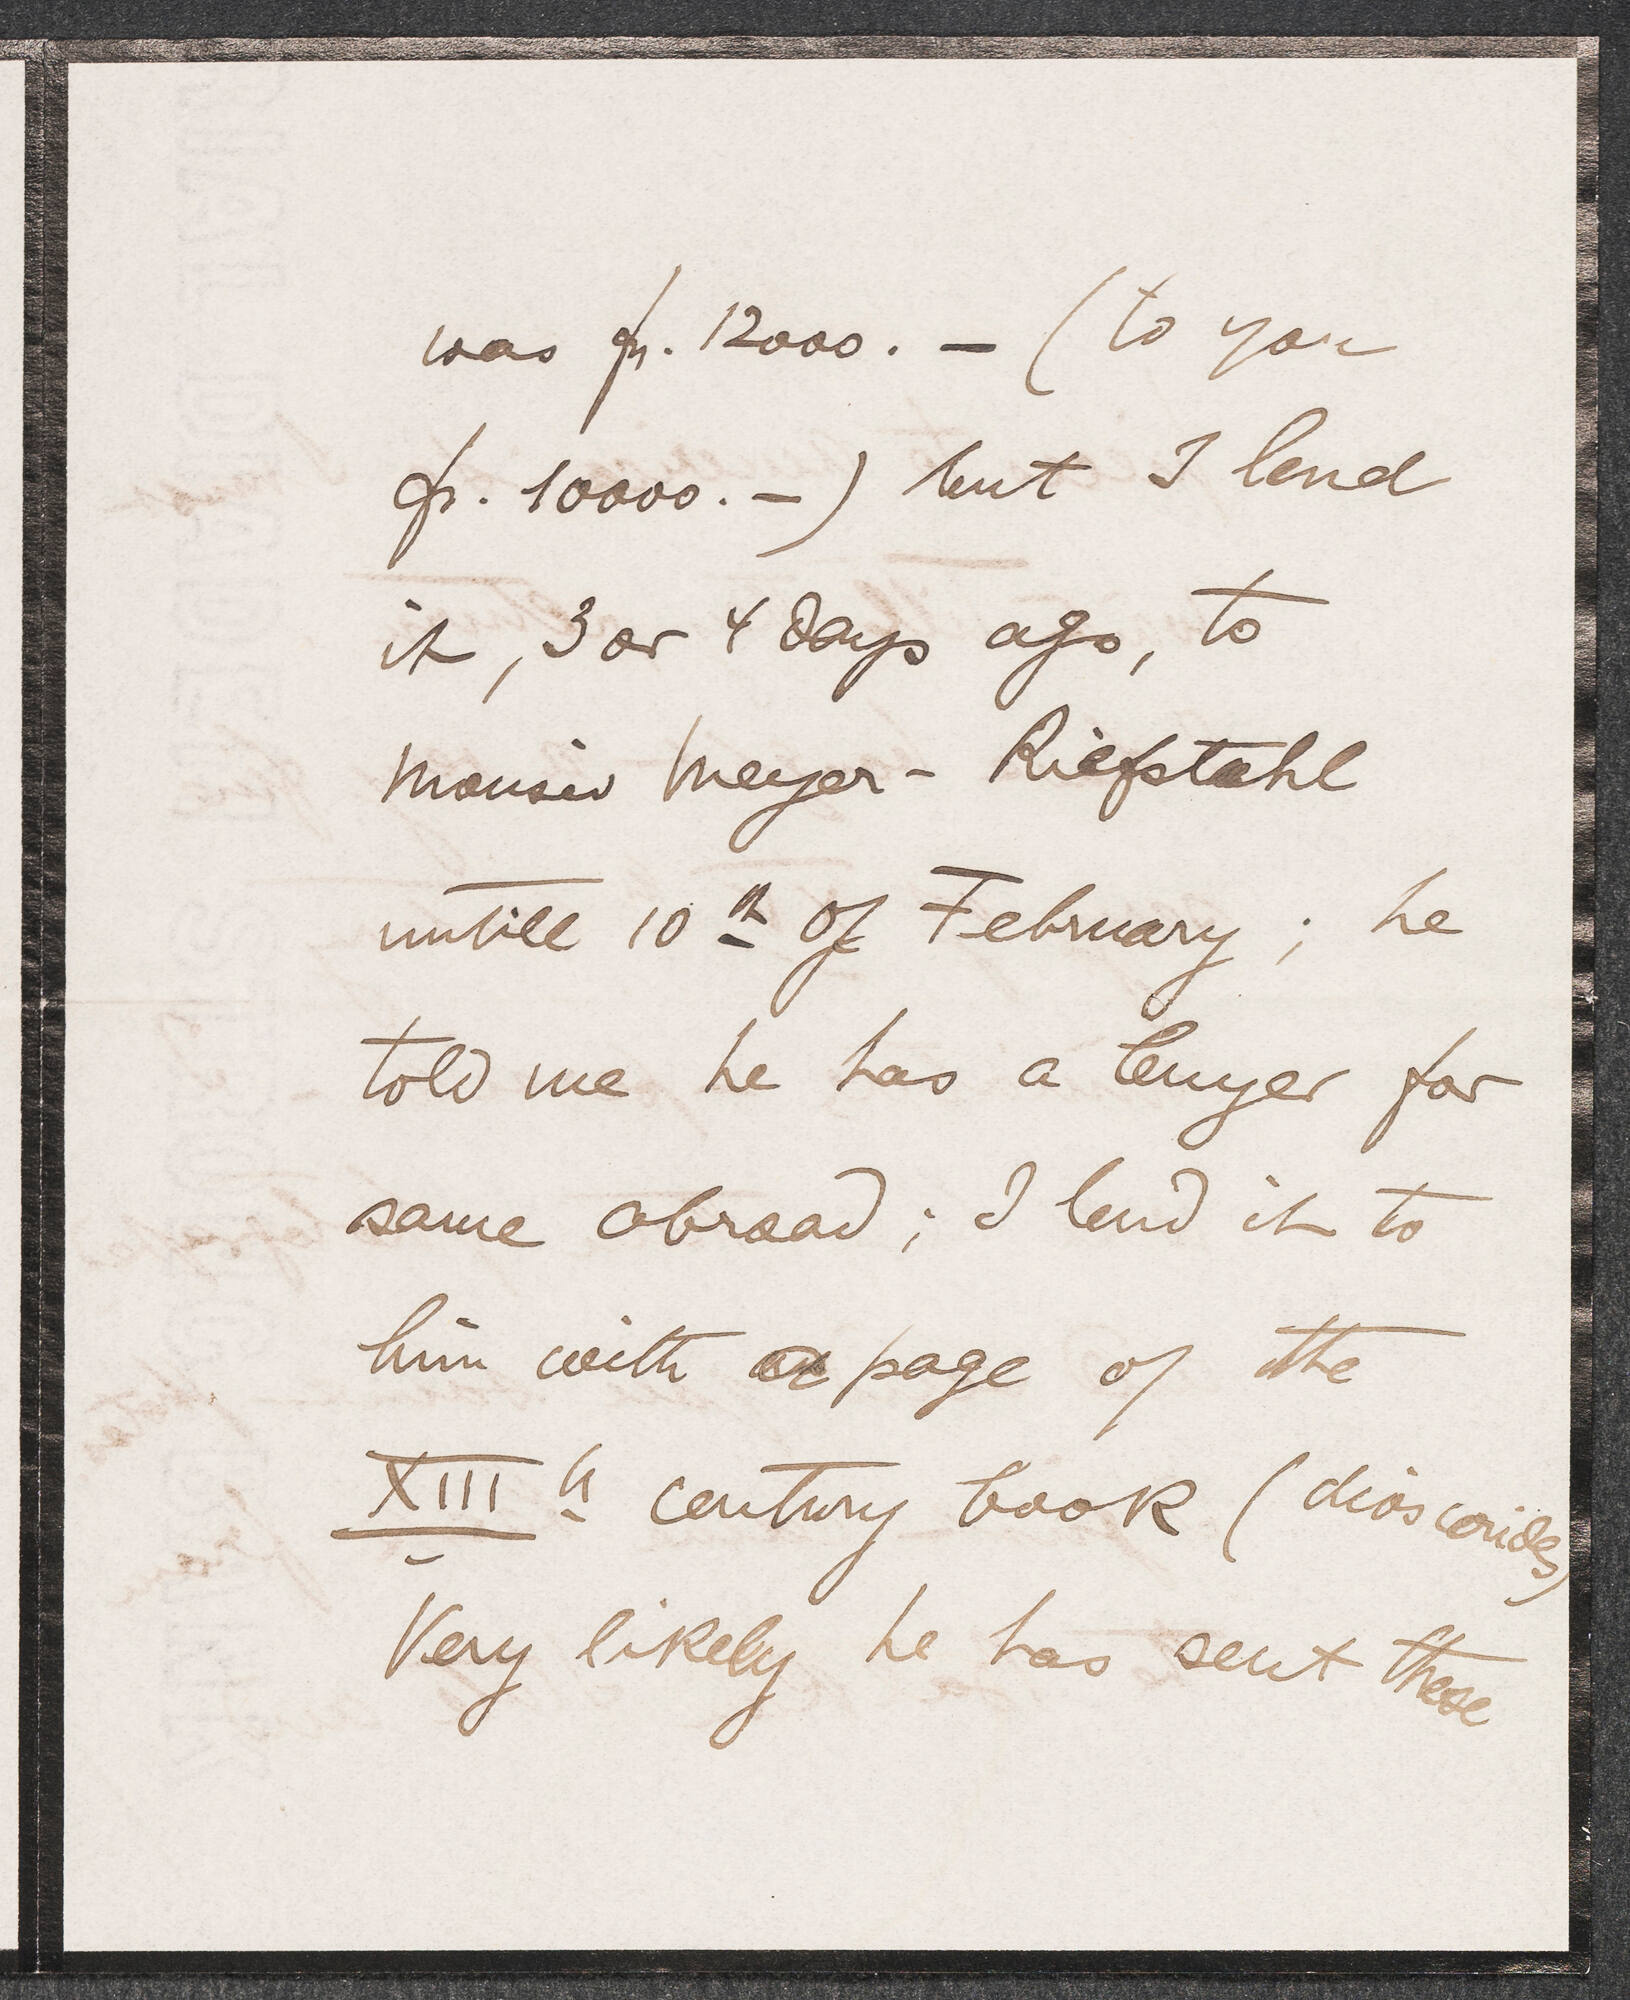 was fr. 12000. — (to you
fr. 10000. —) but I lend
it, 3 or 4 days ago, to
Mousiu Meyer - Riefstahl
untill 10th of February ; he
told me he has a buyer for
same abroad ; I lend it to
him with a page of the
XIIIth century book (dioscorides)
Very likely he has sent these